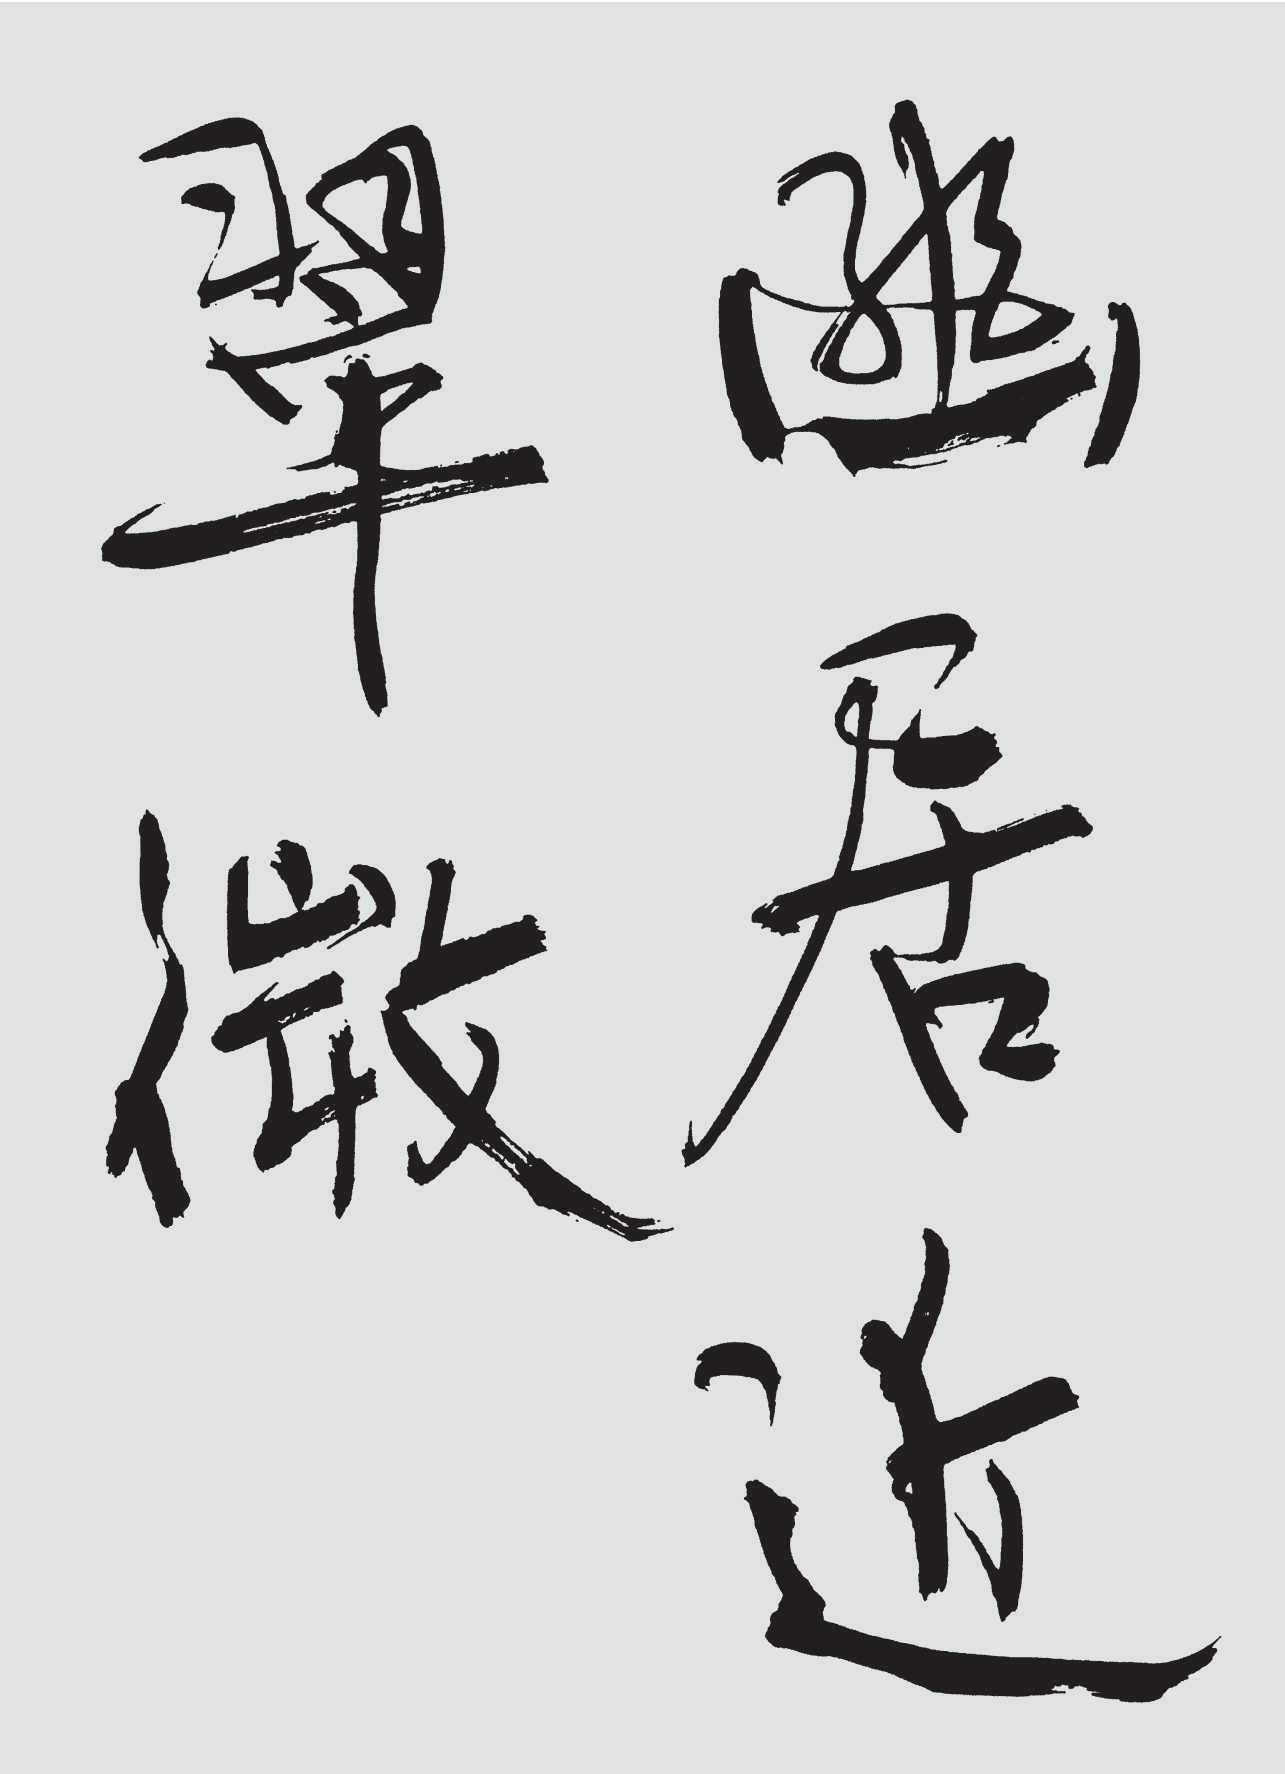 幽居近
翠微